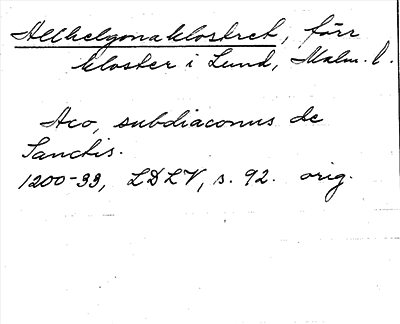 Allhelgonaklostret, förr
kloster i Lund, Malm. l.
Aco, subdiaconus de
Sanctis.
1200-33, LDLV, s. 92. orig.